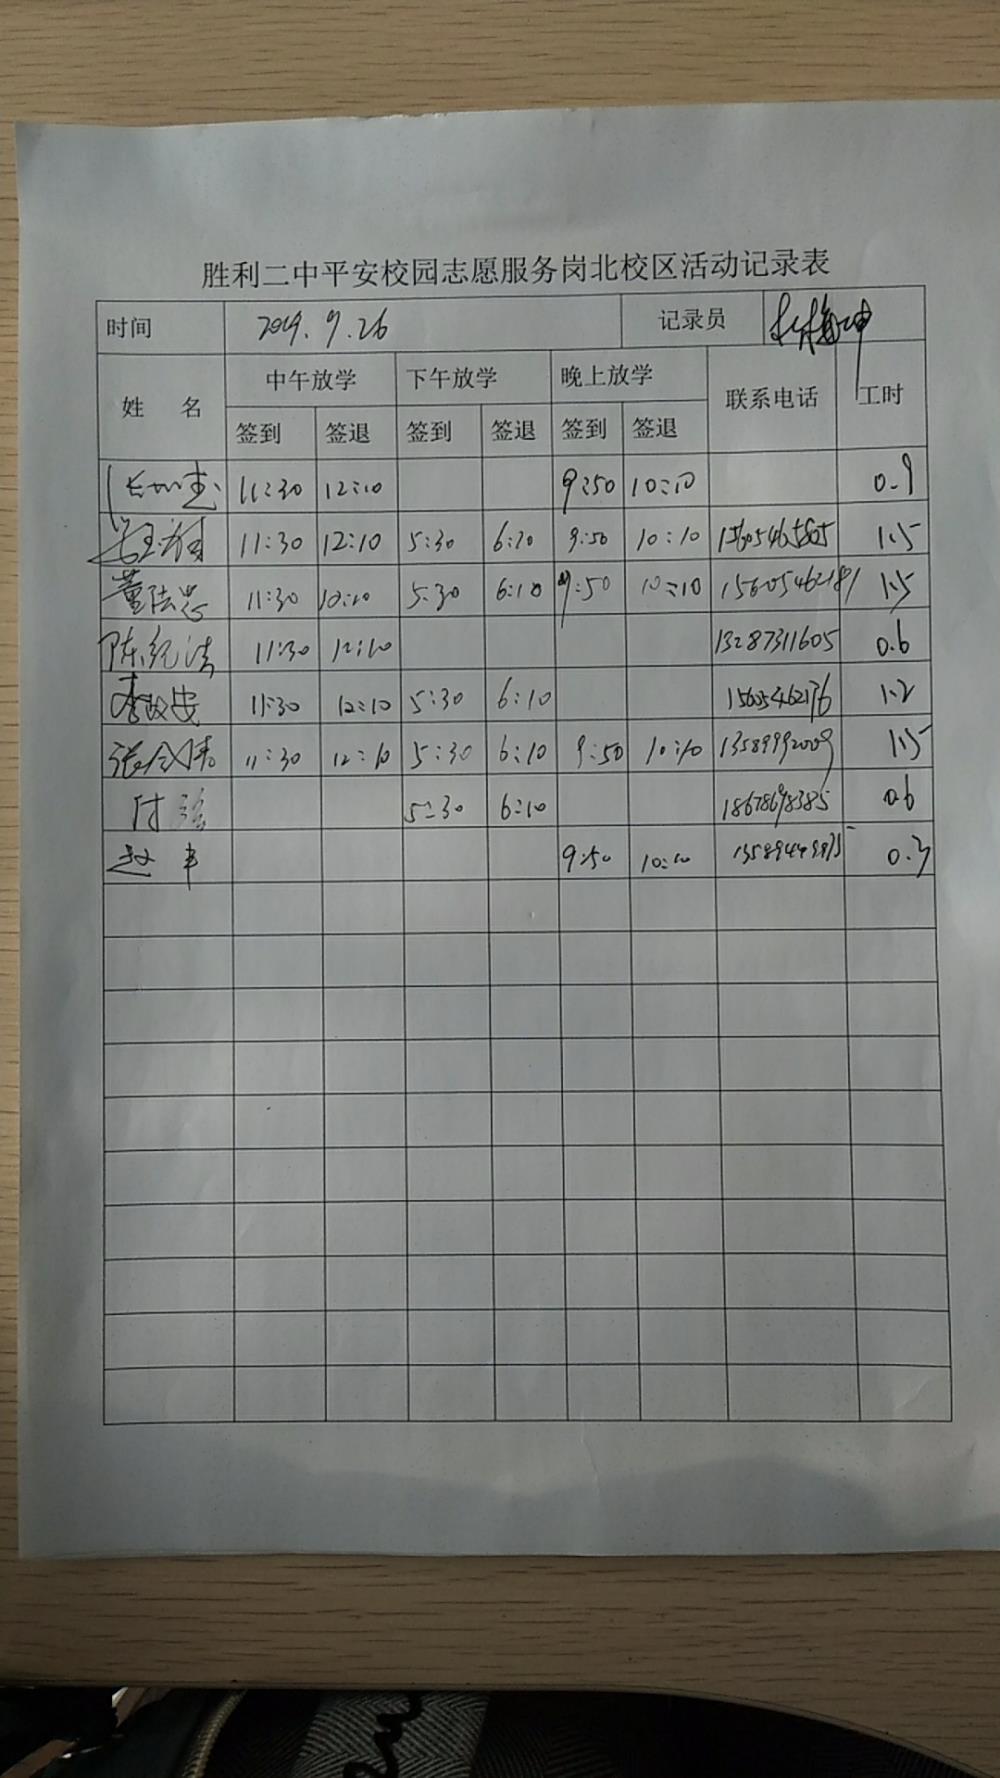 胜利二中平安校园志愿服务岗北校区活动记录表
时间 2019.9.26 记录员
姓 名 中午放学 下午放学 晚上放学 联系电话 工时
签到 签退 签到 签退 签到 签退
11:30 12:10 9:50 10:10 0.9
11:30 12:10 5:30 6:10 9:50 10:10 1.5
董 11:30 10:10 5:30 6:10 9:50 10:10 15605462181 1.5
陈纪法 11:30 12:10 13287311605 0.6
李 11:30 12:10 5:30 6:10 15605462176 1.2
张 11:30 12:10 5:30 6:10 9:50 10:10 13589992009 1.5
付 5:30 6:10 18678698385 0.6
赵丰 9:50 10:10 0.3